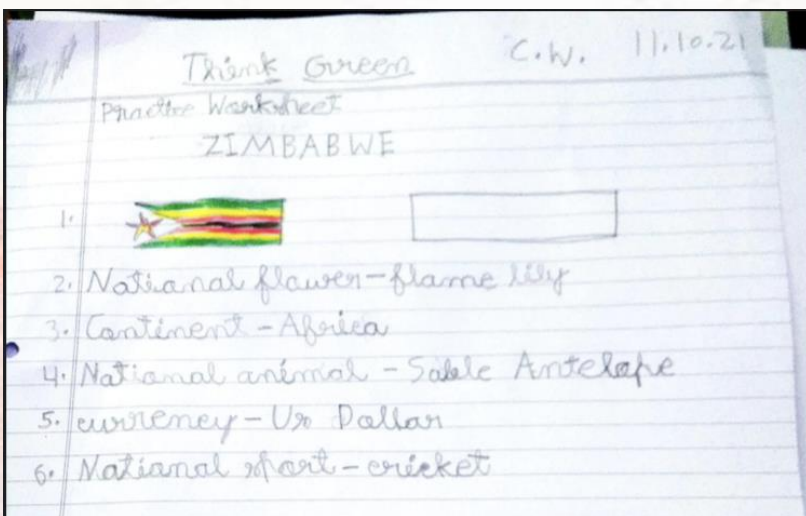 Think Green C.W. 11.10.21
Practice Worksheet
ZIMBABWE
1.
2. National flower - flame lily
3. Continent - Africa
4. National animal - Sable Antelope
5. currency - Us Dollar
6. National sport - cricket